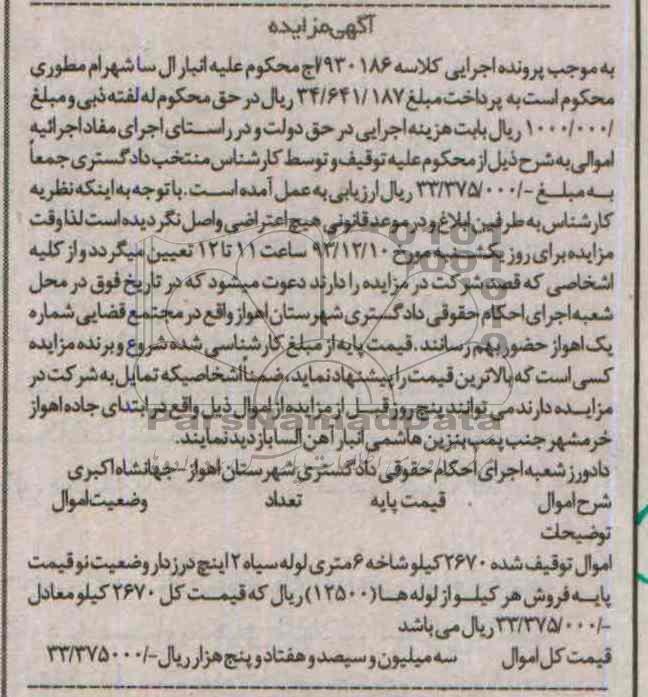 آگهی مزایده
به موجب پرونده اجرایی کلاسه ۹۳۰۱۸۶/اج محکوم علیه انبار ال سا شهرام مطوری
محکوم است به پرداخت مبلغ ۳۴/۶۴۱/۱۸۷ ریال در حق محکوم له لفته ذبی و مبلغ
/۱۰۰۰/۰۰۰ ریال بابت هزینه اجرایی در حق دولت و در راستای اجرای مفاد اجرائیه
اموالی به شرح ذیل از محکوم علیه توقیف و توسط کارشناس منتخب دادگستری جمعاً
به مبلغ -/۳۳/۳۷۵/۰۰۰ ریال ارزیابی به عمل آمده است. با توجه به اینکه نظریه
کارشناس به طرفین ابلاغ و در موعد قانونی هیچ اعتراضی واصل نگردیده است لذا وقت
مزایده برای روز یکشنبه مورخ ۹۳/۱۲/۱۰ ساعت ۱۱ تا ۱۲ تعیین میگردد و از کلیه
اشخاصی که قصد شرکت در مزایده را دارند دعوت میشود که در تاریخ فوق در محل
شعبه اجرای احکام حقوقی دادگستری شهرستان اهواز واقع در مجتمع قضایی شماره
یک اهواز حضور بهم رسانند. قیمت پایه از مبلغ کارشناسی شده شروع و برنده مزایده
کسی است که بالاترین قیمت را پیشنهاد نماید، ضمناً اشخاصیکه تمایل به شرکت در
مزایده دارند می توانند پنج روز قبل از مزایده از اموال ذیل واقع در ابتدای جاده اهواز
خرمشهر جنب پمپ بنزین هاشمی انبار آهن السا بازدید نمایند.
دادورز شعبه اجرای احکام حقوقی دادگستری شهرستان اهواز - جهانشاه اکبری
شرح اموال قیمت پایه تعداد وضعیت اموال
توضیحات
اموال توقیف شده ۲۶۷۰ کیلو شاخه ۶ متری لوله سیاه ۲ اینچ درزدار وضعیت نو قیمت
پایه فروش هر کیلو از لوله ها (۱۲۵۰۰) ریال که قیمت کل ۲۶۷۰ کیلو معادل
-/۳۳/۳۷۵/۰۰۰ ریال می باشد
قیمت کل اموال سه میلیون و سیصد و هفتاد و پنج هزار ریال -/۳۳/۳۷۵۰۰۰
ParsNamadData